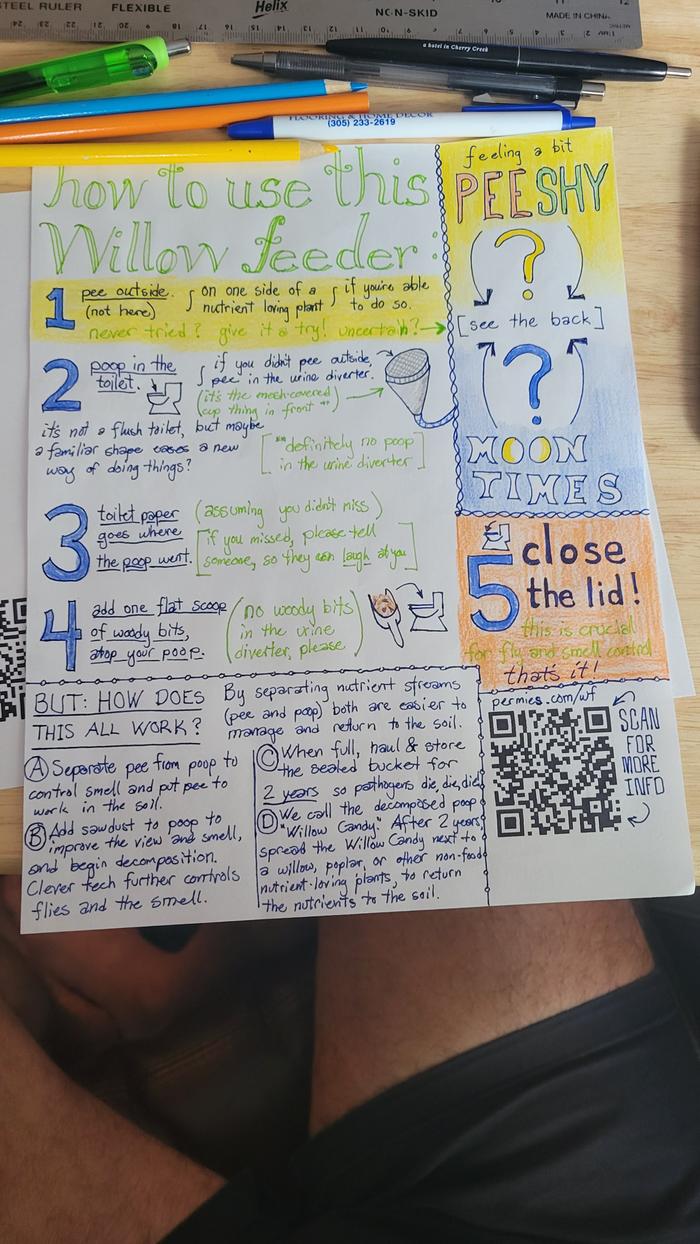 STEEL RULER FLEXIBLE Helix NON-SKID MADE IN CHINA
a hotel in Cherry Creek
FLOORING & HOME DECOR
(305) 233-2619
how to use this
Willow feeder:
1 pee outside. (not here)
on one side of a nutrient loving plant
if you're able to do so.
never tried? give it a try! uncertain?
2 poop in the toilet.
if you didn't pee outside,
pee in the urine diverter.
(it's the mesh-covered
cup thing in front **)
it's not a flush toilet, but maybe
a familiar shape eases a new
way of doing things?
[**definitely no poop
in the urine diverter]
3 toilet paper
goes where
the poop went.
(assuming you didn't miss)
[if you missed, please tell
someone, so they can laugh at you]
4 add one flat scoop
of woody bits,
atop your poop.
(no woody bits
in the urine
diverter, please)
feeling a bit
PEE SHY
?
[see the back]
?
MOON
TIMES
5 close
the lid!
this is crucial
for fly and smell control
that's it!
BUT: HOW DOES
THIS ALL WORK?
By separating nutrient streams
(pee and poop) both are easier to
manage and return to the soil.
A Separate pee from poop to
control smell and put pee to
work in the soil.
B Add sawdust to poop to
improve the view and smell,
and begin decomposition.
Clever tech further controls
flies and the smell.
C When full, haul & store
the sealed bucket for
2 years so pathogens die, die, die!
D We call the decomposed poop
"Willow Candy." After 2 years,
spread the Willow Candy next to
a willow, poplar, or other non-food
nutrient-loving plants, to return
the nutrients to the soil.
permies.com/wf
SCAN
FOR
MORE
INFO